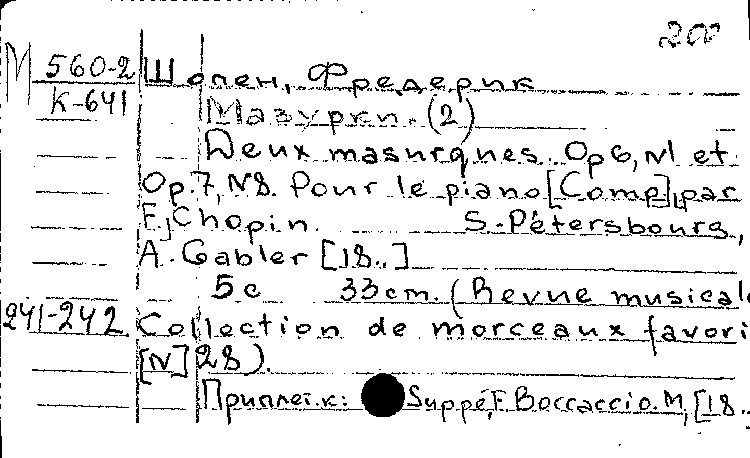 200
М 560-2 Шопен, Фредерик
К-641 Мазурки. (2)
Deux masurques. Op 6, N1 et
Op. 7, N8. Pour le piano [Comp] par
F. Chopin. S.-Pétersbourg,
A. Gabler [18..]
5 с 33 cm. (Revue musicale
241-242. Collection de morceaux favori
[N] 28).
Приплет.к: Suppé, F. Boccaccio. М, [18..